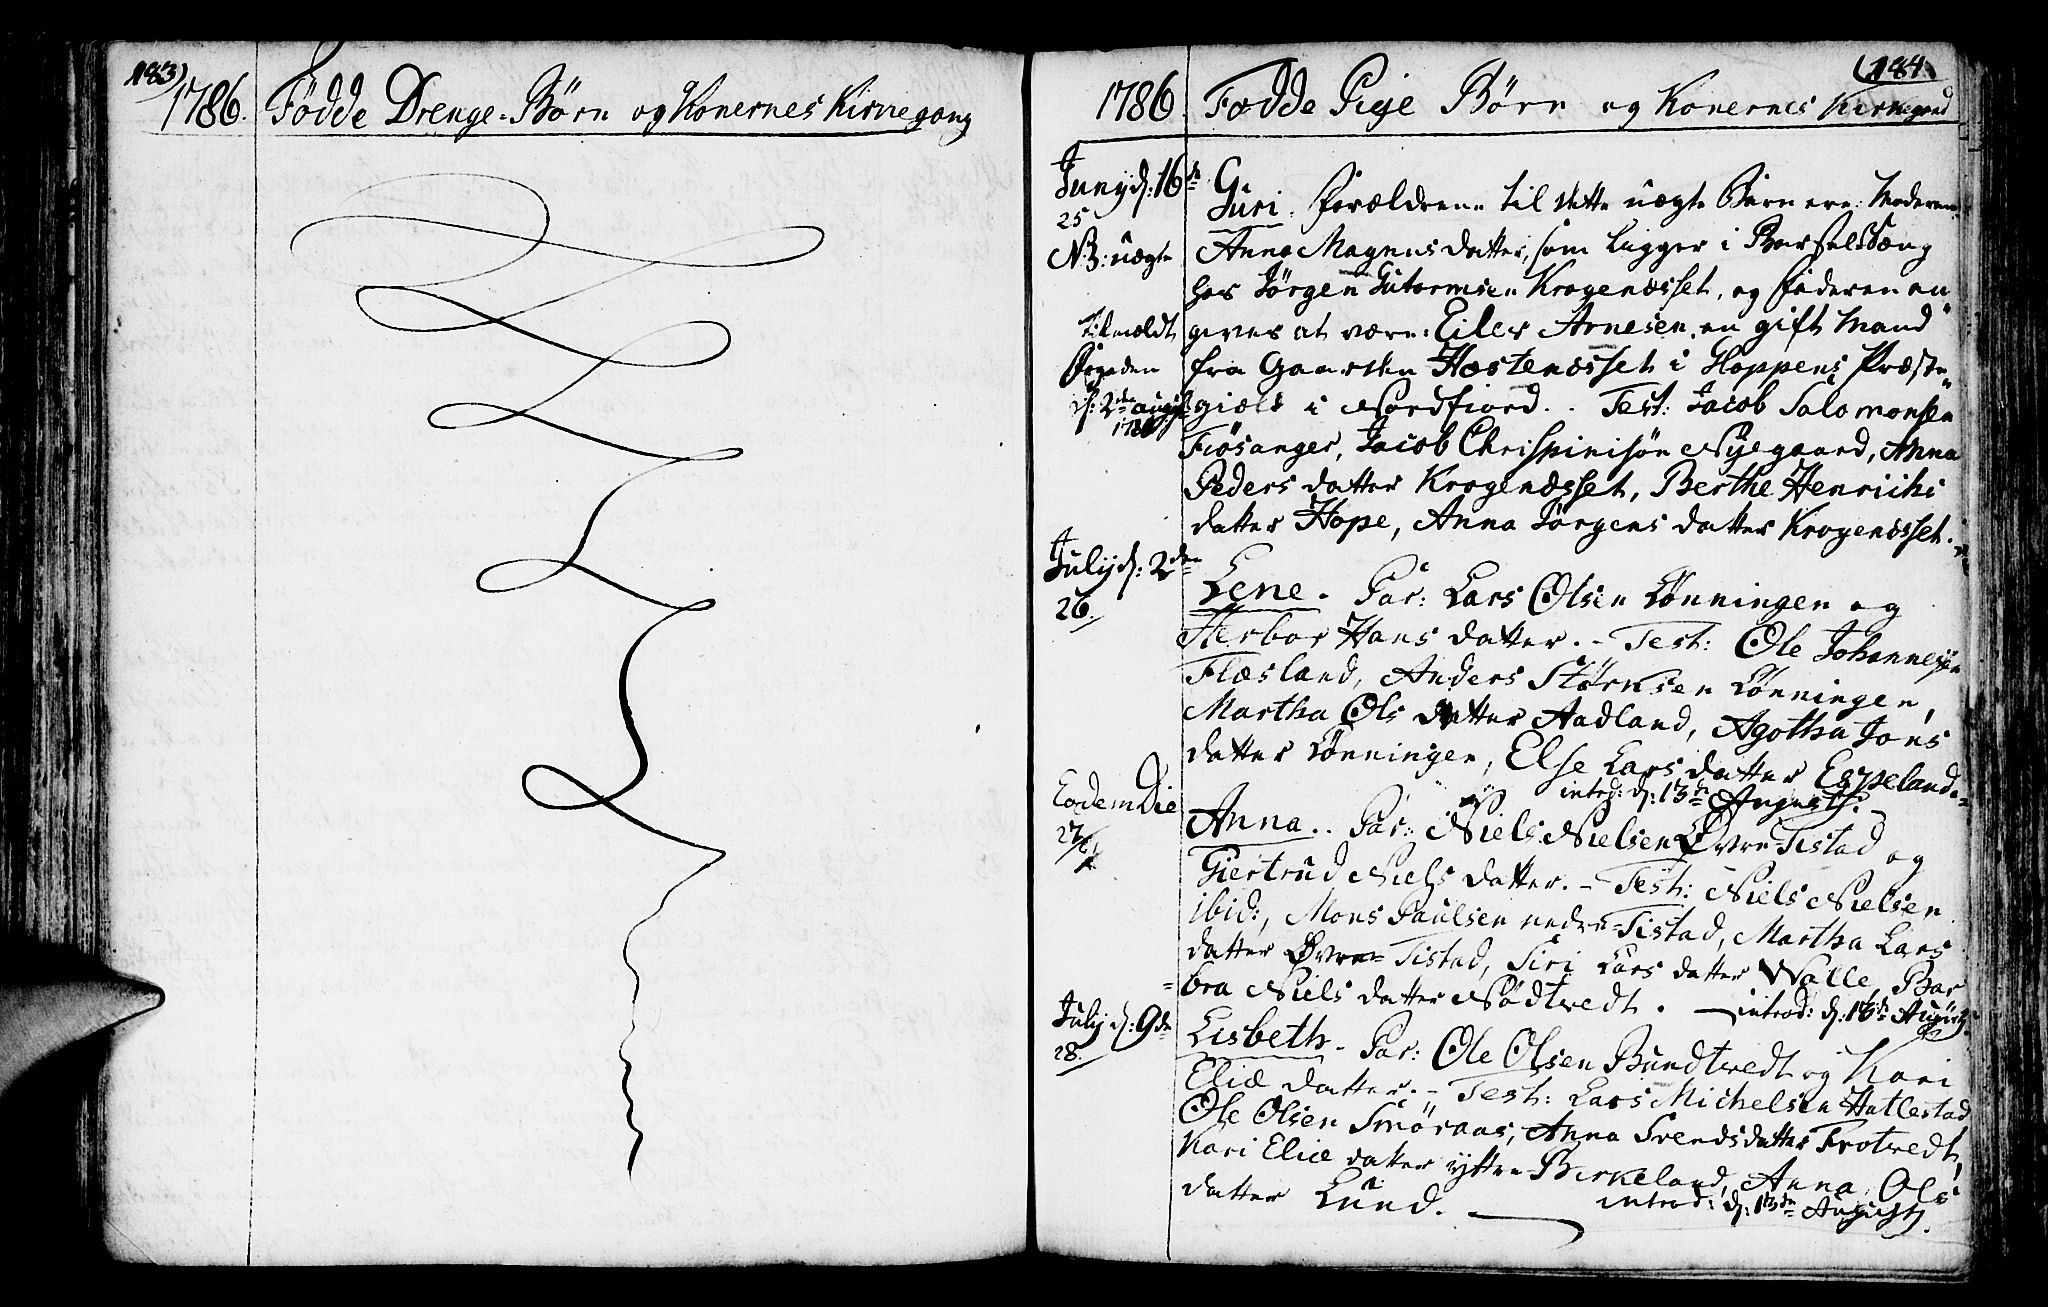 183)
1786. Födde Drenge-Börn og Konernes Kirkegang
(184
1786. Fødde Pige Börn og Konernes Kirkegang
Juny d: 16de Guri. Forældrene til dette uægte Barn ere: Moderen
25
NB: uægte Anna Magnus datter, som ligger i BarselSæng
hos Jörgen Gutormsen Krogenæsset, og Faderen an
tilmældt gives at være: Eiler Arnesen, en gift Mand
Fogeden fra Gaarden Hæstenæsset i Hoppens Præste
d: 2den augst giæld i Nordfiord. . Test: Jacob Salomonsen
1786
Fiösanger, Jacob Chrispinisön Nyegaard, Anna
Peders datter Krogenæsset, Berthe Henrichs
datter Hope, Anna Jörgens datter Krogenæsset.
July d: 2den Lene. Par: Lars Olsen Lönningen og
26.
Herbor Hans datter. - Test: Ole Johannesen
Flæsland, Anders Störksen Lönningen,
Martha Ols datter Aadland, Agotha Jons
datter Lönningen, Else Lars datter Espeland.
introd: d: 13de Augusti.
Eodem Die Anna.. Par: Niels Nielsen Øvre-Tistad og
27
Giertrud Niels datter. - Test: Niels Nielsen
ibid:, Mons Paulsen nedre-Tistad, Martha Lars
datter Øvre-Tistad, Siri Lars datter Walle, Bar
bra Niels datter Nödtvedt. introd: d: 13de August.
July d: 9de Lisbeth. Par: Ole Olsen Bundtvedt og Kari
28.
Eliæ datter. - Test: Lars Michelsen Hatlestad
Ole Olsen Smöraas, Anna Svends datter Trotvedt,
Kari Eliæ datter yttre Birkeland, Anna Ols
datter Lund. introd: d: 13de Augusti.